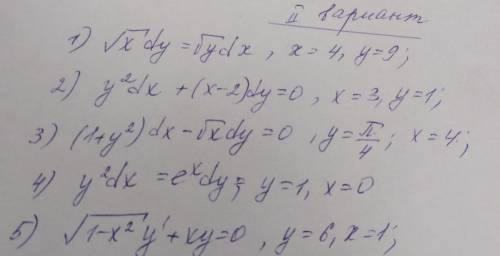 II вариант
1) √x dy = √y dx , x = 4, y = 9;
2) y² dx + (x-2) dy = 0 , x = 3, y = 1;
3) (1+y²) dx - √x dy = 0 , y = π/4 ; x = 4;
4) y² dx = eˣ dy ; y = 1, x = 0
5) √(1-x²) y' + xy = 0 , y = 6, x = 1;